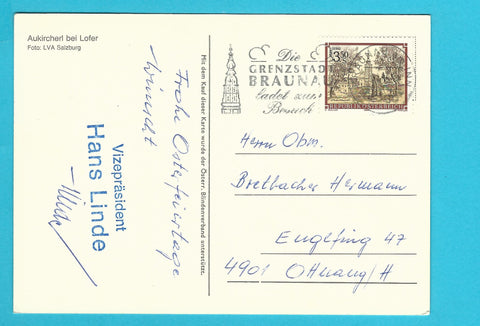 Aukircherl bei Lofer
Foto: LVA Salzburg
Frohe Osterfeiertage
wünscht
Vizepräsident
Hans Linde
Mit dem Kauf dieser Karte wurde der Österr. Blindenverband unterstützt.
Die
GRENZSTADT
BRAUNAU
ladet zum
Besuch
3.50
REPUBLIK ÖSTERREICH
Herrn Obm.
Breitbacher Hermann
Englfing 47
4901 Ottnang/H